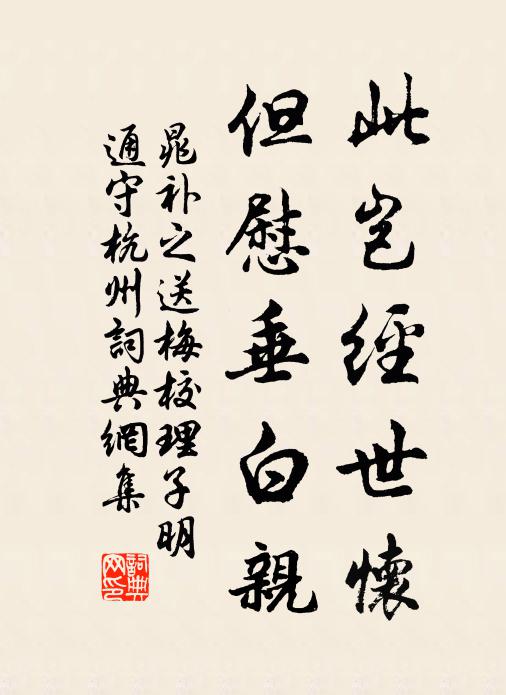 此豈經世懷
但慰垂白親
晁補之送梅校理子明
通守杭州詞典網集
詞典
网印